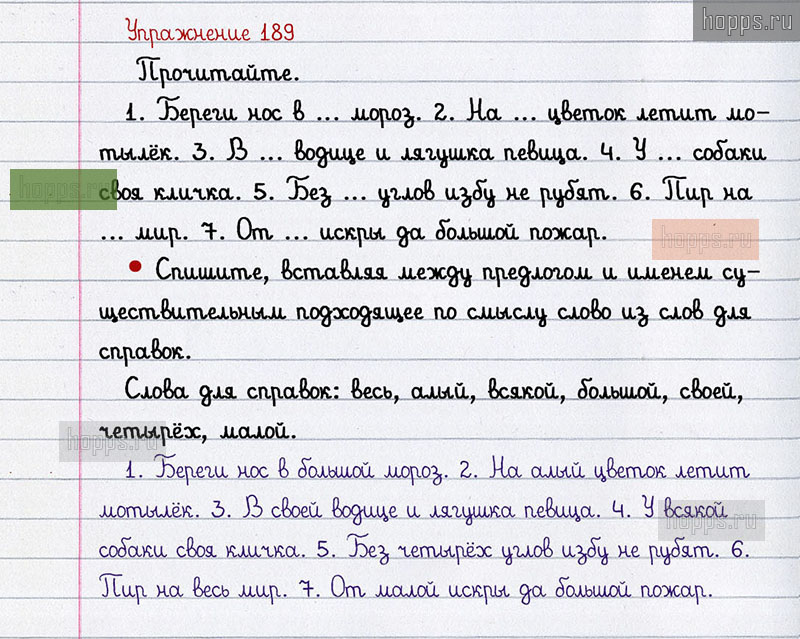 hopps.ru
Упражнение 189
Прочитайте.
1. Береги нос в ... мороз. 2. На ... цветок летит мо-
тылёк. 3. В ... водице и лягушка певица. 4. У ... собаки
hopps.ru
своя кличка. 5. Без ... углов избу не рубят. 6. Пир на
... мир. 7. От ... искры да большой пожар.
hopps.ru
• Спишите, вставляя между предлогом и именем су-
ществительным подходящее по смыслу слово из слов для
справок.
Слова для справок: весь, алый, всякой, большой, своей,
четырёх, малой.
hopps.ru
1. Береги нос в большой мороз. 2. На алый цветок летит
мотылёк. 3. В своей водице и лягушка певица. 4. У всякой
hopps.ru
собаки своя кличка. 5. Без четырёх углов избу не рубят. 6.
Пир на весь мир. 7. От малой искры да большой пожар.